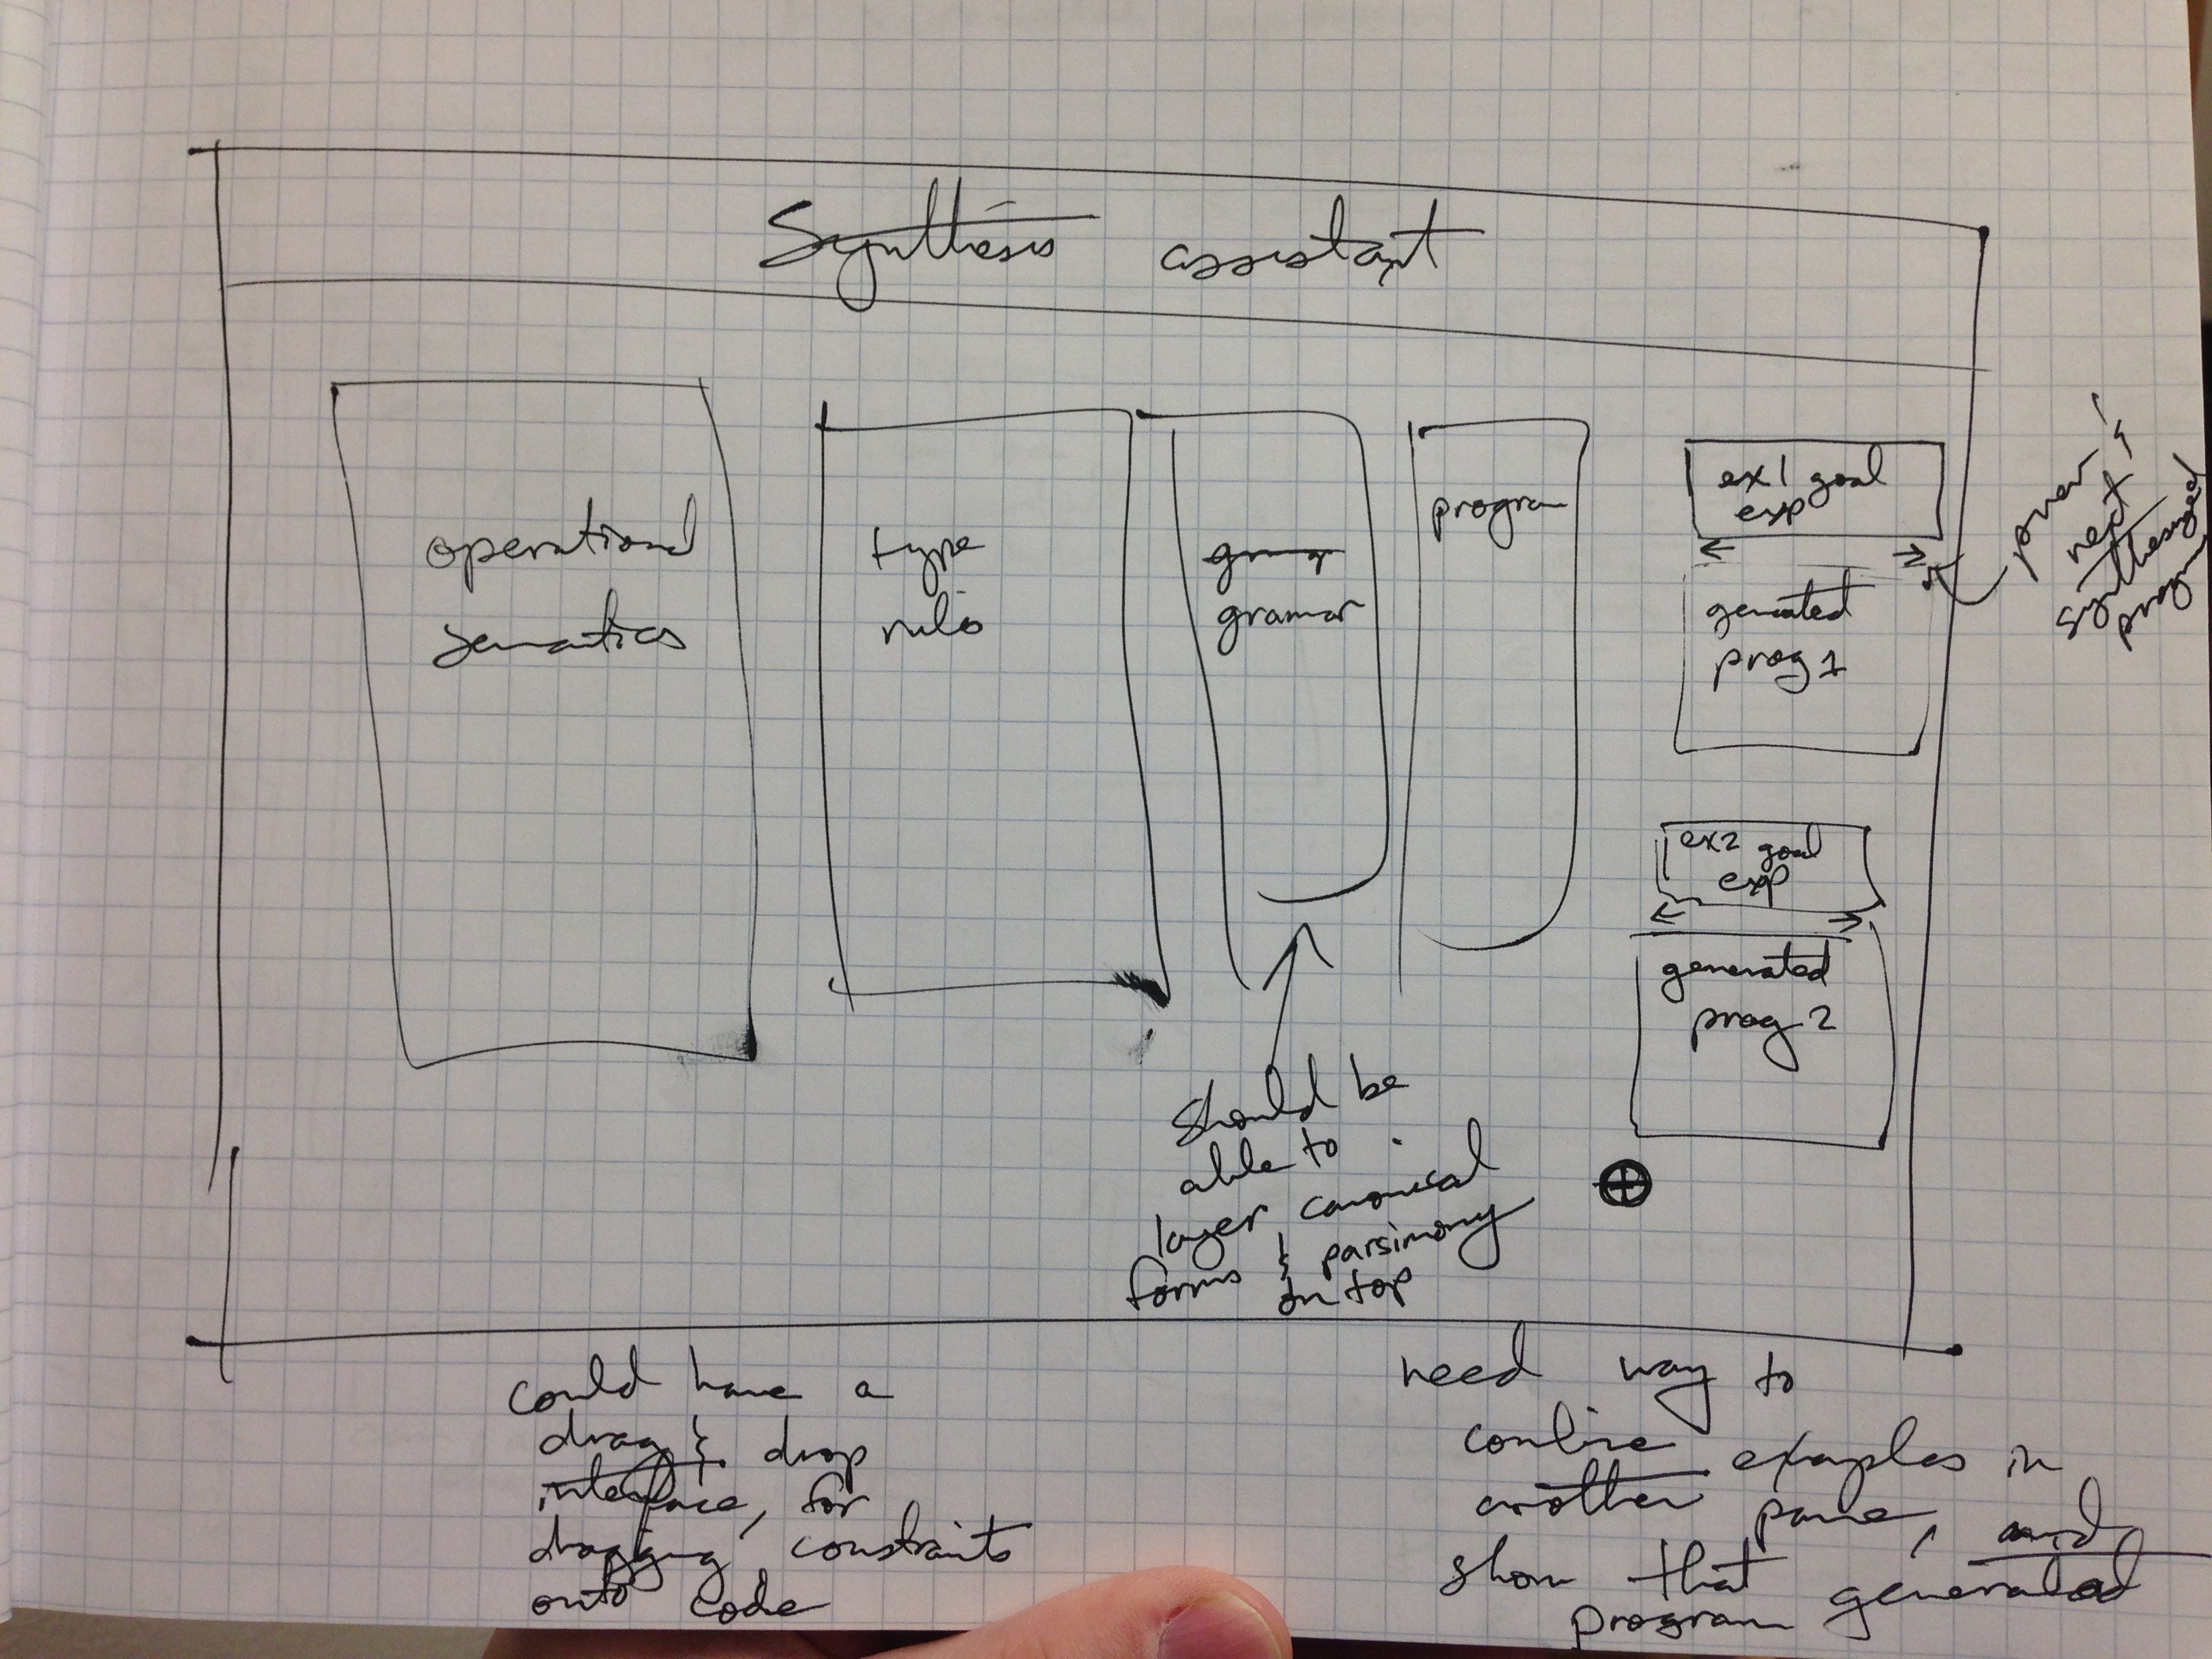 Synthesis assistant
operational
semantics
type
rules
gramar
program
ex1 goal
exp
generated
prog 1
prev &
next
synthesized
program
ex2 goal
exp
generated
prog 2
should be
able to
layer canonical
forms & parsimony
on top
could have a
drag & drop
interface, for
dragging constraints
onto code
need way to
combine examples in
another pane, and
show that generated
program